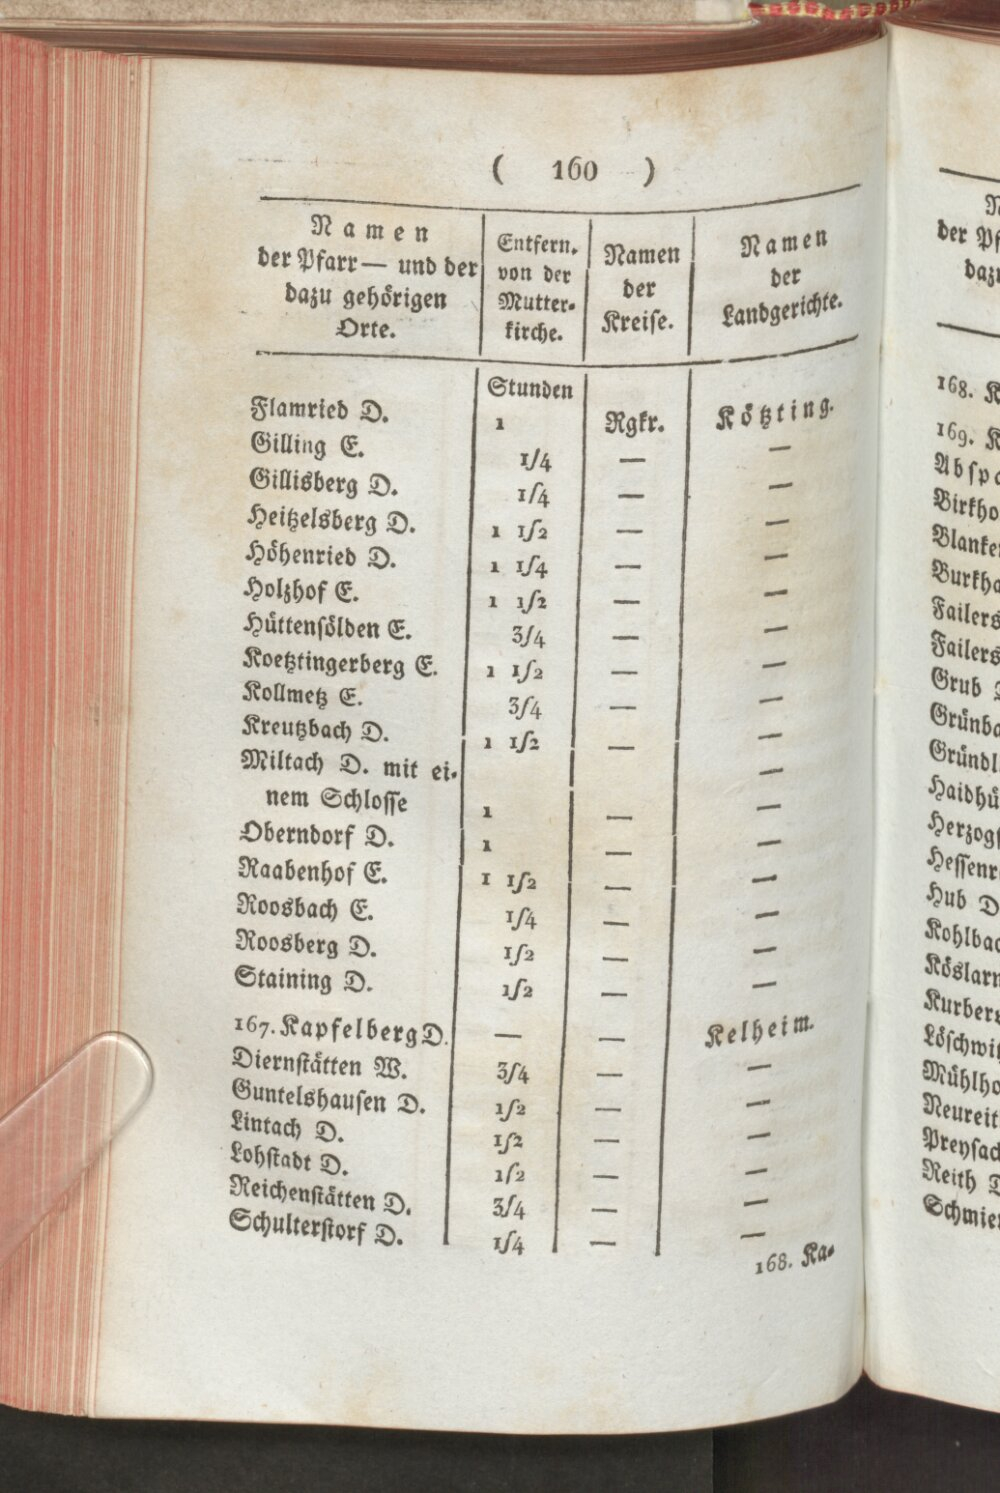 ( 160 )
Namen der Pfarr— und der dazu gehörigen Orte. | Entfern. von der Mutter- kirche. | Namen der Kreise. | Namen der Landgerichte.
Stunden
Flamried D. 1 Rgkr. Kötzting.
Gilling E. 1/4 — —
Gillisberg D. 1/4 — —
Heitzelsberg D. 1 1/2 — —
Höhenried D. 1 1/4 — —
Holzhof E. 1 1/2 — —
Hüttensölden E. 3/4 — —
Koetztingerberg E. 1 1/2 — —
Kollmetz E. 3/4 — —
Kreutzbach D. 1 1/2 — —
Miltach D. mit ei-
nem Schlosse 1 — —
Oberndorf D. 1 — —
Raabenhof E. 1 1/2 — —
Roosbach E. 1/4 — —
Roosberg D. 1/2 — —
Staining D. 1/2 — —
167. Kapfelberg D. — — Kelheim.
Diernstätten W. 3/4 — —
Guntelshausen D. 1/2 — —
Lintach D. 1/2 — —
Lohstadt D. 1/2 — —
Reichenstätten D. 3/4 — —
Schulterstorf D. 1/4 — —
168. Ka-
N
der Pf
dazu
168. K
169. K
Abspa
Birkho
Blanke
Burkha
Failers
Failers
Grub
Grünba
Gründl
Haidhü
Herzogs
Hessenr
Hub D
Kohlbac
Köslarn
Kurbers
Löschwi
Mühlho
Neureit
Preysac
Reith D
Schmie